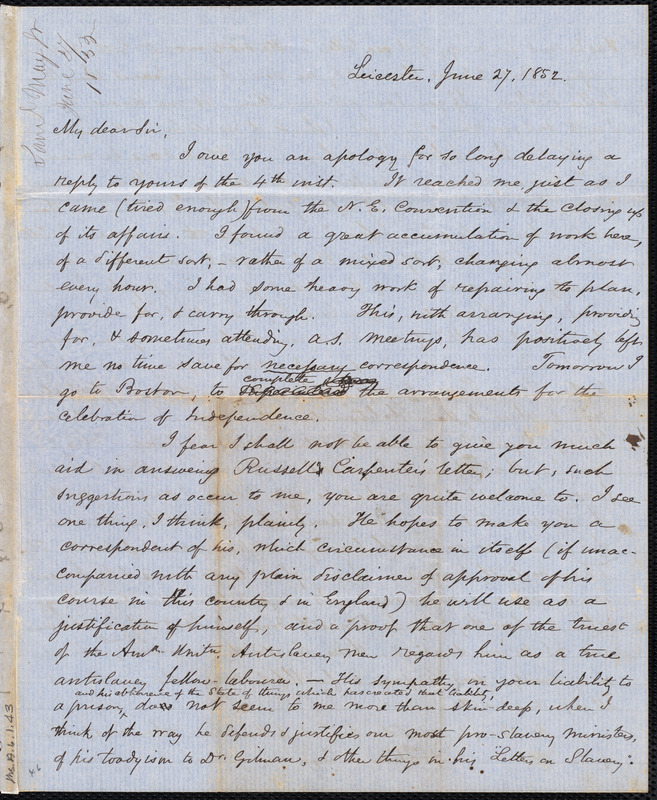 Saml May Jr
June 27
1852
Leicester, June 27, 1852.
My dear Sir,
I owe you an apology for so long delaying a
reply to yours of the 4th inst. It reached me just as I
came (tired enough) from the N. E. Convention & the closing up
of its affairs. I found a great accumulation of work here,
of a different sort, – rather of a mixed sort, changing almost
every hour. I had some heavy work of repairing to plan,
provide for, & carry through. This, with arranging, providing
for, & sometimes attending, a.s. meetings, has positively left
me no time save for necessary correspondence. Tomorrow I
go to Boston, to complete the arrangements for the
celebration of Independence.
I fear I shall not be able to give you much
aid in answering Russell Carpenter's letter; but, such
suggestions as occur to me, you are quite welcome to. I see
one thing, I think, plainly. He hopes to make you a
correspondent of his, which circumstance in itself (if unac-
companied with any plain disclaimer of approval of his
course in this country & in England) he will use as a
justification of himself, and a proof that one of the truest
of the Amn. Unitn. Antislavery men regards him as a true
antislavery fellow-labourer. – His sympathy in your liability to
and his abhorrence of the State of things which has created that liability,
a prison, does not seem to me more than skin-deep, when I
think of the way he defends & justifies our most pro-slavery ministers,
of his toadyism to Dr. Gilman, & other things in his Letters on Slavery.
Ms. A. 6. 1. 43